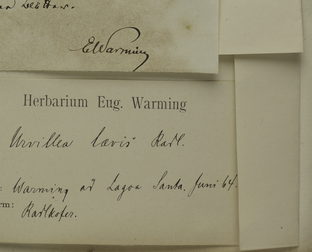 E Warming
Herbarium Eug. Warming
Urvillea lævis Radl.
: Warming ad Lagoa Santa. Juni 64.
rm: Radlkofer.